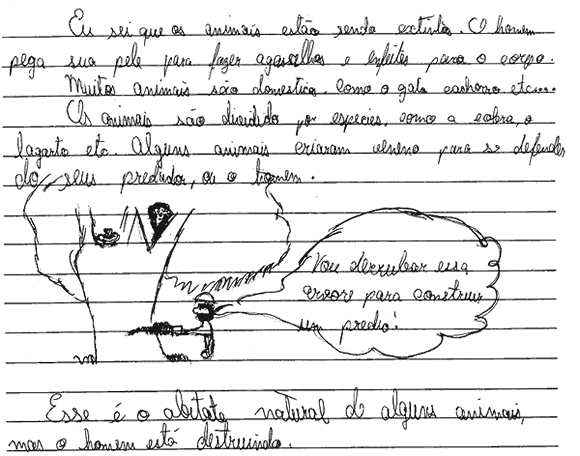 Eu sei que os animais estão sendo extintos. O homem
pega sua pele para fazer agasalhos e enfeites para o corpo.
Muitos animais são domestico. Como o gato cachorro etc...
Os animais são dividido por especies, como a cobra, o
lagarto etc. Alguns animais criaram veneno para se defender
do seus predador, ou o homem.
Vou derrubar essa
arvore para construir
um predio!
Esse é o abitate natural d alguns animais,
mas o homem está destruindo.